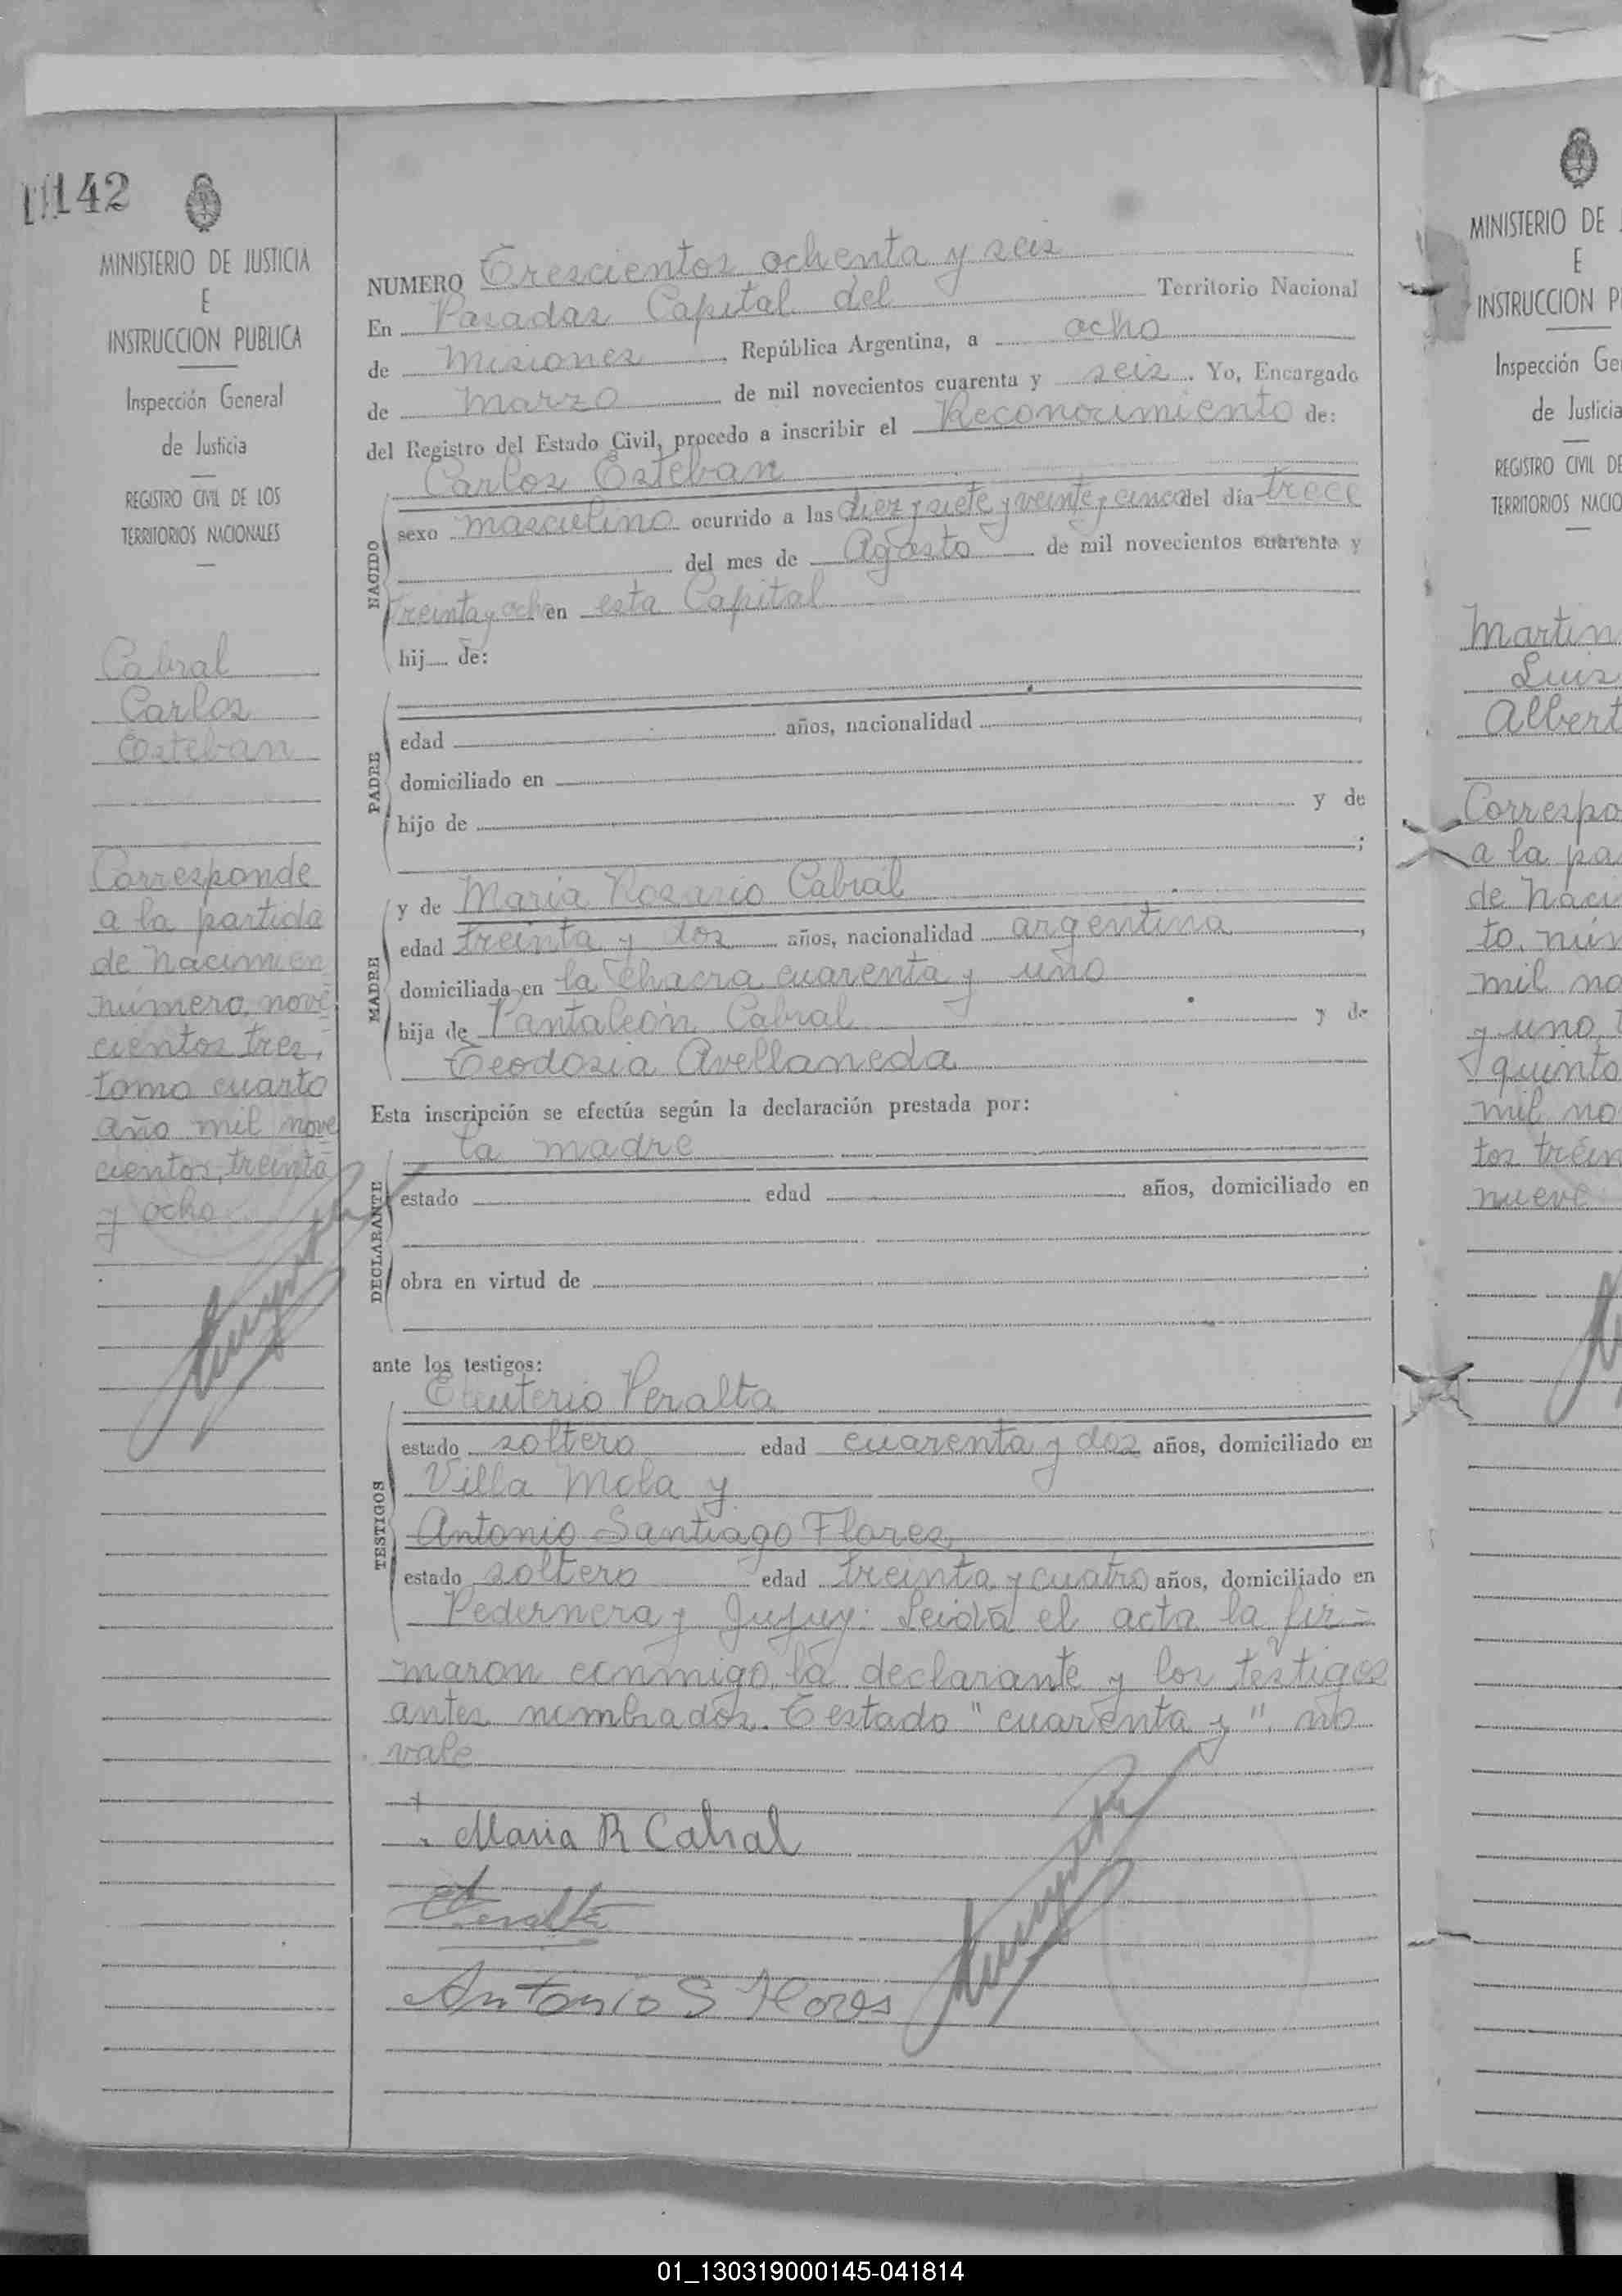 142
MINISTERIO DE JUSTICIA
E
INSTRUCCION PUBLICA
Inspección General
de Justicia
REGISTRO CIVIL DE LOS
TERRITORIOS NACIONALES
Cabral
Carlos
Esteban
Corresponde
a la partida
de Nacimien
número nove
cientos tres,
tomo cuarto
año mil nove
cientos treinta
y ocho
NUMERO Trescientos ochenta y seis
En Posadas Capital del Territorio Nacional
de Misiones, República Argentina, a ocho
de Marzo de mil novecientos cuarenta y seis. Yo, Encargado
del Registro del Estado Civil, procedo a inscribir el Reconocimiento de:
Carlos Esteban
NACIDO
sexo masculino ocurrido a las diez y siete y veinte y cinco del día trece
del mes de Agosto de mil novecientos cuarenta y
treinta y ocho en esta Capital
hij de:
PADRE
edad años, nacionalidad
domiciliado en
hijo de y de
;
MADRE
y de Maria Rosario Cabral
edad treinta y dos años, nacionalidad argentina,
domiciliada en la chacra cuarenta y uno
hija de Pantaleón Cabral y de
Teodosia Avellaneda
Esta inscripción se efectúa según la declaración prestada por:
la madre
DECLARANTE
estado edad años, domiciliado en
obra en virtud de
ante los testigos:
TESTIGOS
Eleuterio Peralta
estado soltero edad cuarenta y dos años, domiciliado en
Villa Mola y
Antonio Santiago Flores,
estado soltero edad treinta y cuatro años, domiciliado en
Pedernera y Jujuy. Leida el acta la fir=
maron conmigo, la declarante y los testigos
antes nombrados. Testado "cuarenta y" no
vale
Maria R Cabral
Peralta
Antonio S Flores
MINISTERIO DE
E
INSTRUCCION P
Inspección Ge
de Justicia
REGISTRO CIVIL DE
TERRITORIOS NACIO
Martin
Luis
Albert
Correspo
a la pa
de Naci
to, núm
mil no
y uno, t
quinto
mil no
tos trein
nueve
01_130319000145-041814